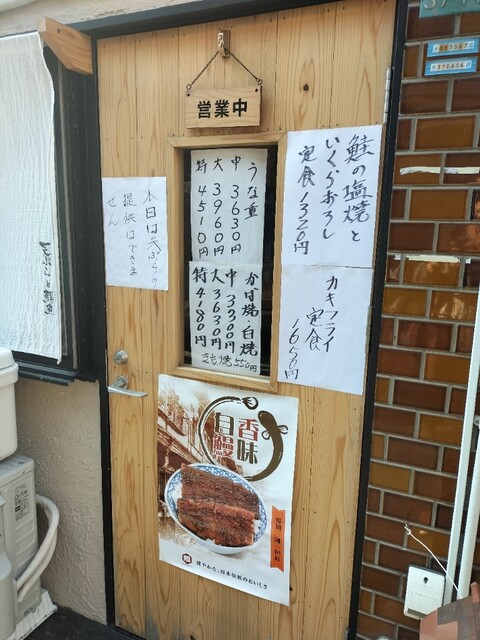 営業中
鮭の塩焼と
いくらおろし
定食1320円
カキフライ
定食
1650円
うな重
中 3630円
大 3960円
特 4510円
かば焼・白焼
中 3300円
大 3630円
特 4180円
きも焼550円
本日は天ぷらの
提供はできま
せん
香味
自鰻